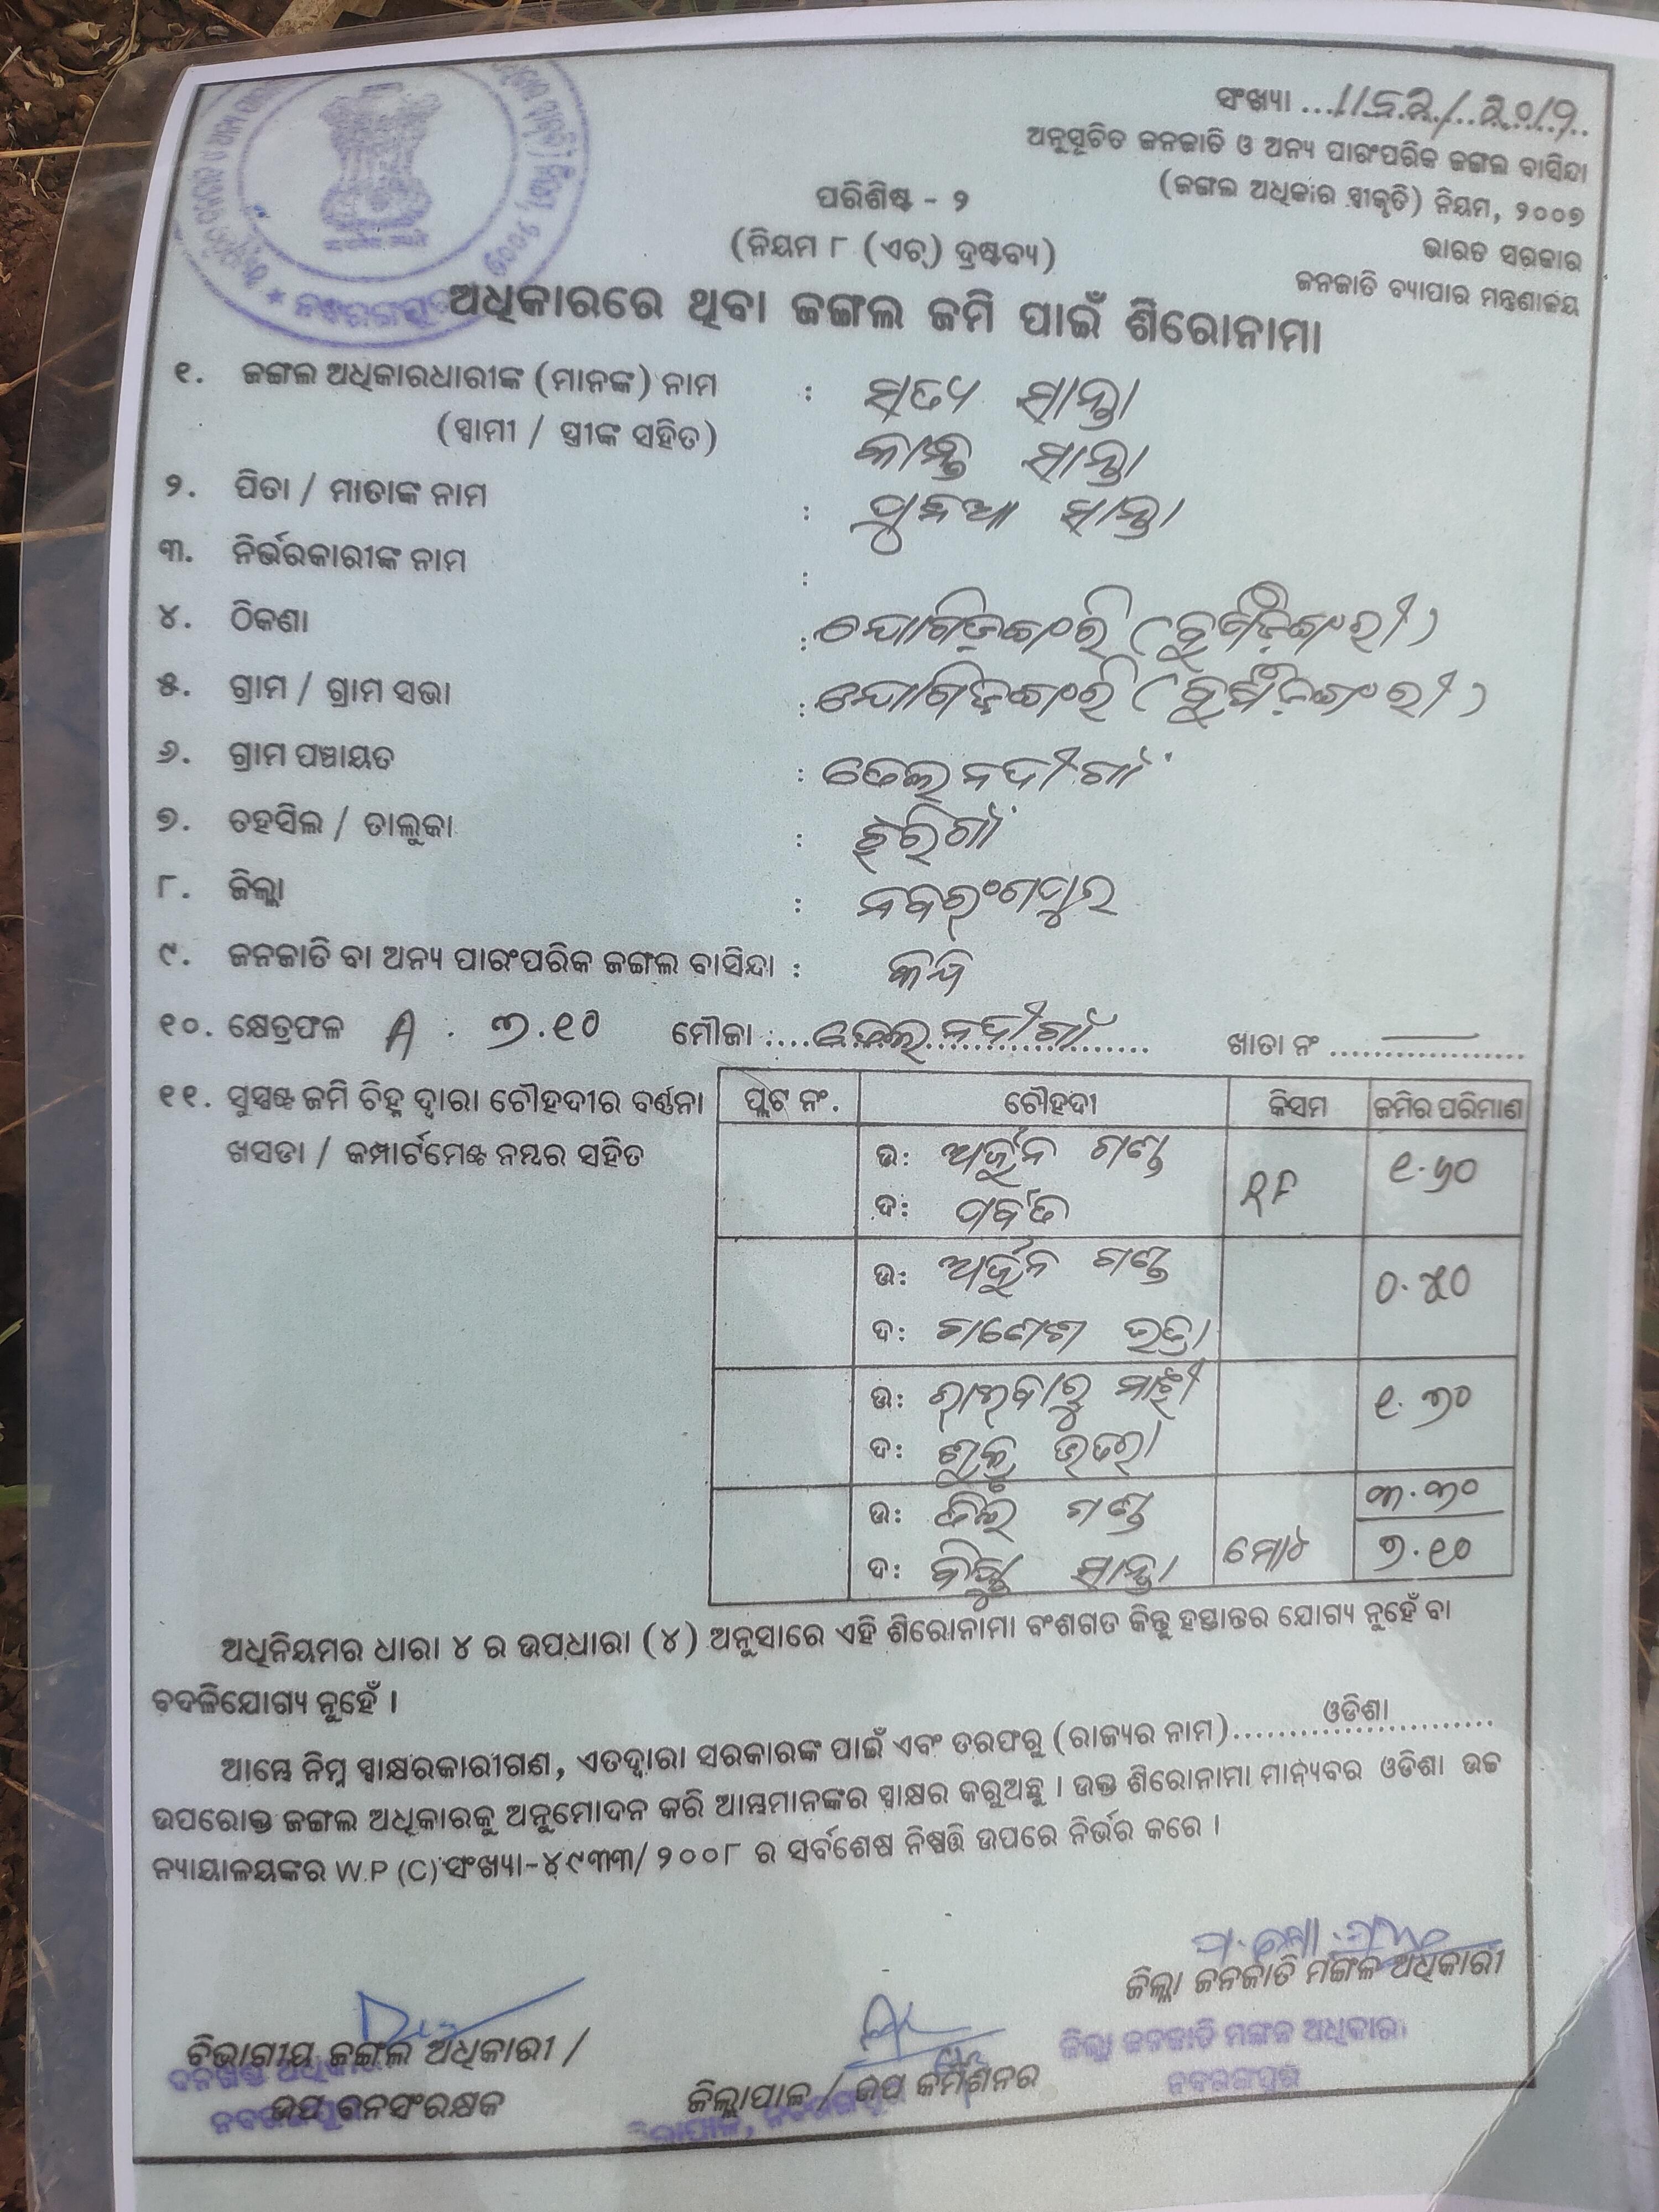 ସଂଖ୍ୟା
ଅନୁସୂଚିତ ଜନଜାତି ଓ ଅନ୍ୟ ପାରଂପରିକ ଜଙ୍ଗଲ ବାସିନ୍ଦା
(ଜଙ୍ଗଲ ଅଧିକାର ସ୍ୱୀକୃତି) ନିୟମ, ୨୦୦୭
ଭାରତ ସରକାର
ଜନଜାତି ବ୍ୟାପାର ମନ୍ତ୍ରଣାଳୟ
ପରିଶିଷ୍ଟ - ୨
(ନିୟମ ୮ (ଏଚ୍) ଦ୍ରଷ୍ଟବ୍ୟ)
ଅଧିକାରରେ ଥିବା ଜଙ୍ଗଲ ଜମି ପାଇଁ ଶିରୋନାମା
୧. ଜଙ୍ଗଲ ଅଧିକାରଧାରୀଙ୍କ (ମାନଙ୍କ) ନାମ : ସତ୍ୟ ସାନ୍ତା
(ସ୍ୱାମୀ / ସ୍ତ୍ରୀଙ୍କ ସହିତ) ସାନ୍ତା
୨. ପିତା / ମାତାଙ୍କ ନାମ : ସାନ୍ତା
୩. ନିର୍ଭରକାରୀଙ୍କ ନାମ :
୪. ଠିକଣା :
୫. ଗ୍ରାମ / ଗ୍ରାମ ସଭା :
୬. ଗ୍ରାମ ପଞ୍ଚାୟତ : ତେଲନଦୀଗାଁ
୭. ତହସିଲ / ତାଲୁକା : ଝରିଗାଁ
୮. ଜିଲ୍ଲା : ନବରଂଗପୁର
୯. ଜନଜାତି ବା ଅନ୍ୟ ପାରଂପରିକ ଜଙ୍ଗଲ ବାସିନ୍ଦା :
୧୦. କ୍ଷେତ୍ରଫଳ A . ୭.୧୦ ମୌଜା : ତେଲନଦୀଗାଁ ଖାତା ନଂ
୧୧. ସୁସ୍ପଷ୍ଟ ଜମି ଚିହ୍ନ ଦ୍ୱାରା ଚୌହଦୀର ବର୍ଣ୍ଣନା
ଖସଡା / କମ୍ପାର୍ଟମେଣ୍ଟ ନମ୍ବର ସହିତ
ପ୍ଲଟ ନଂ. ଚୌହଦୀ କିସମ ଜମିର ପରିମାଣ
ଉ: ଅର୍ଜୁନ ଗଣ୍ଡ
ଦ: ପର୍ବତ RF ୧.୬୦
ଉ: ଅର୍ଜୁନ ଗଣ୍ଡ
ଦ: ଗଣେଶ ୦.୫୦
ଉ: ରାଇବାରୁ ମାଝୀ
ଦ: ଶୁକ୍ରୁ ଭତରା ୧.୭୦
ଉ: ଗଣ୍ଡ ୩.୩୦
ଦ: ସାନ୍ତା ମୋଟ ୭.୧୦
ଅଧିନିୟମର ଧାରା ୪ ର ଉପଧାରା (୪) ଅନୁସାରେ ଏହି ଶିରୋନାମା ବଂଶଗତ କିନ୍ତୁ ହସ୍ତାନ୍ତର ଯୋଗ୍ୟ ନୁହେଁ ବା
ବଦଳିଯୋଗ୍ୟ ନୁହେଁ ।
ଆମ୍ଭେ ନିମ୍ନ ସ୍ୱାକ୍ଷରକାରୀଗଣ, ଏତଦ୍ଦ୍ୱାରା ସରକାରଙ୍କ ପାଇଁ ଏବଂ ତରଫରୁ (ରାଜ୍ୟର ନାମ) ଓଡିଶା
ଉପରୋକ୍ତ ଜଙ୍ଗଲ ଅଧିକାରକୁ ଅନୁମୋଦନ କରି ଆମ୍ଭମାନଙ୍କର ସ୍ୱାକ୍ଷର କରୁଅଛୁ । ଉକ୍ତ ଶିରୋନାମା ମାନ୍ୟବର ଓଡିଶା ଉଚ୍ଚ
ନ୍ୟାୟାଳୟଙ୍କର W.P (C) ସଂଖ୍ୟା-୪୯୩୩/ ୨୦୦୮ ର ସର୍ବଶେଷ ନିଷ୍ପତ୍ତି ଉପରେ ନିର୍ଭର କରେ ।
ଜିଲ୍ଲା ଜନଜାତି ମଙ୍ଗଳ ଅଧିକାରୀ
ଜିଲ୍ଲା ଜନଜାତି ମଙ୍ଗଳ ଅଧିକାରୀ
ନବରଙ୍ଗପୁର
ବିଭାଗୀୟ ଜଙ୍ଗଲ ଅଧିକାରୀ /
ଉପ ବନସଂରକ୍ଷକ
ଜିଲ୍ଲାପାଳ / ଉପ କମିଶନର